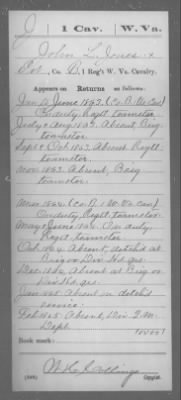 J | 1 Cav. | W. Va.
John L. Jones x
Pvt, Co. B, 1 Reg't W. Va. Cavalry.
Appears on Returns as follows:
Jan & June 1863. (Co. B. Va Cav)
On duty, Regtl teamster
July & Aug 1863. Absent, Brig.
teamster.
Sept & Oct 1863. Absent Regtl
teamster.
Nov. 1863. Absent, Brig
teamster.
Mar. 1864 (Co. B 1 W. Va Cav)
On duty, Regtl teamster.
May & June 1864. On duty,
Regtl teamster
Oct. 1864 Absent, detch'd at
Brig or Div. Hd. qrs.
Dec. 1864, absent at Brig or
Div. Hd. qrs.
Jan 1865 Absent on detch'd
service.
Feb 1865 Absent, Div. Q.M.
Dept.
(OVER)
Book mark:
(546)
Copyist.